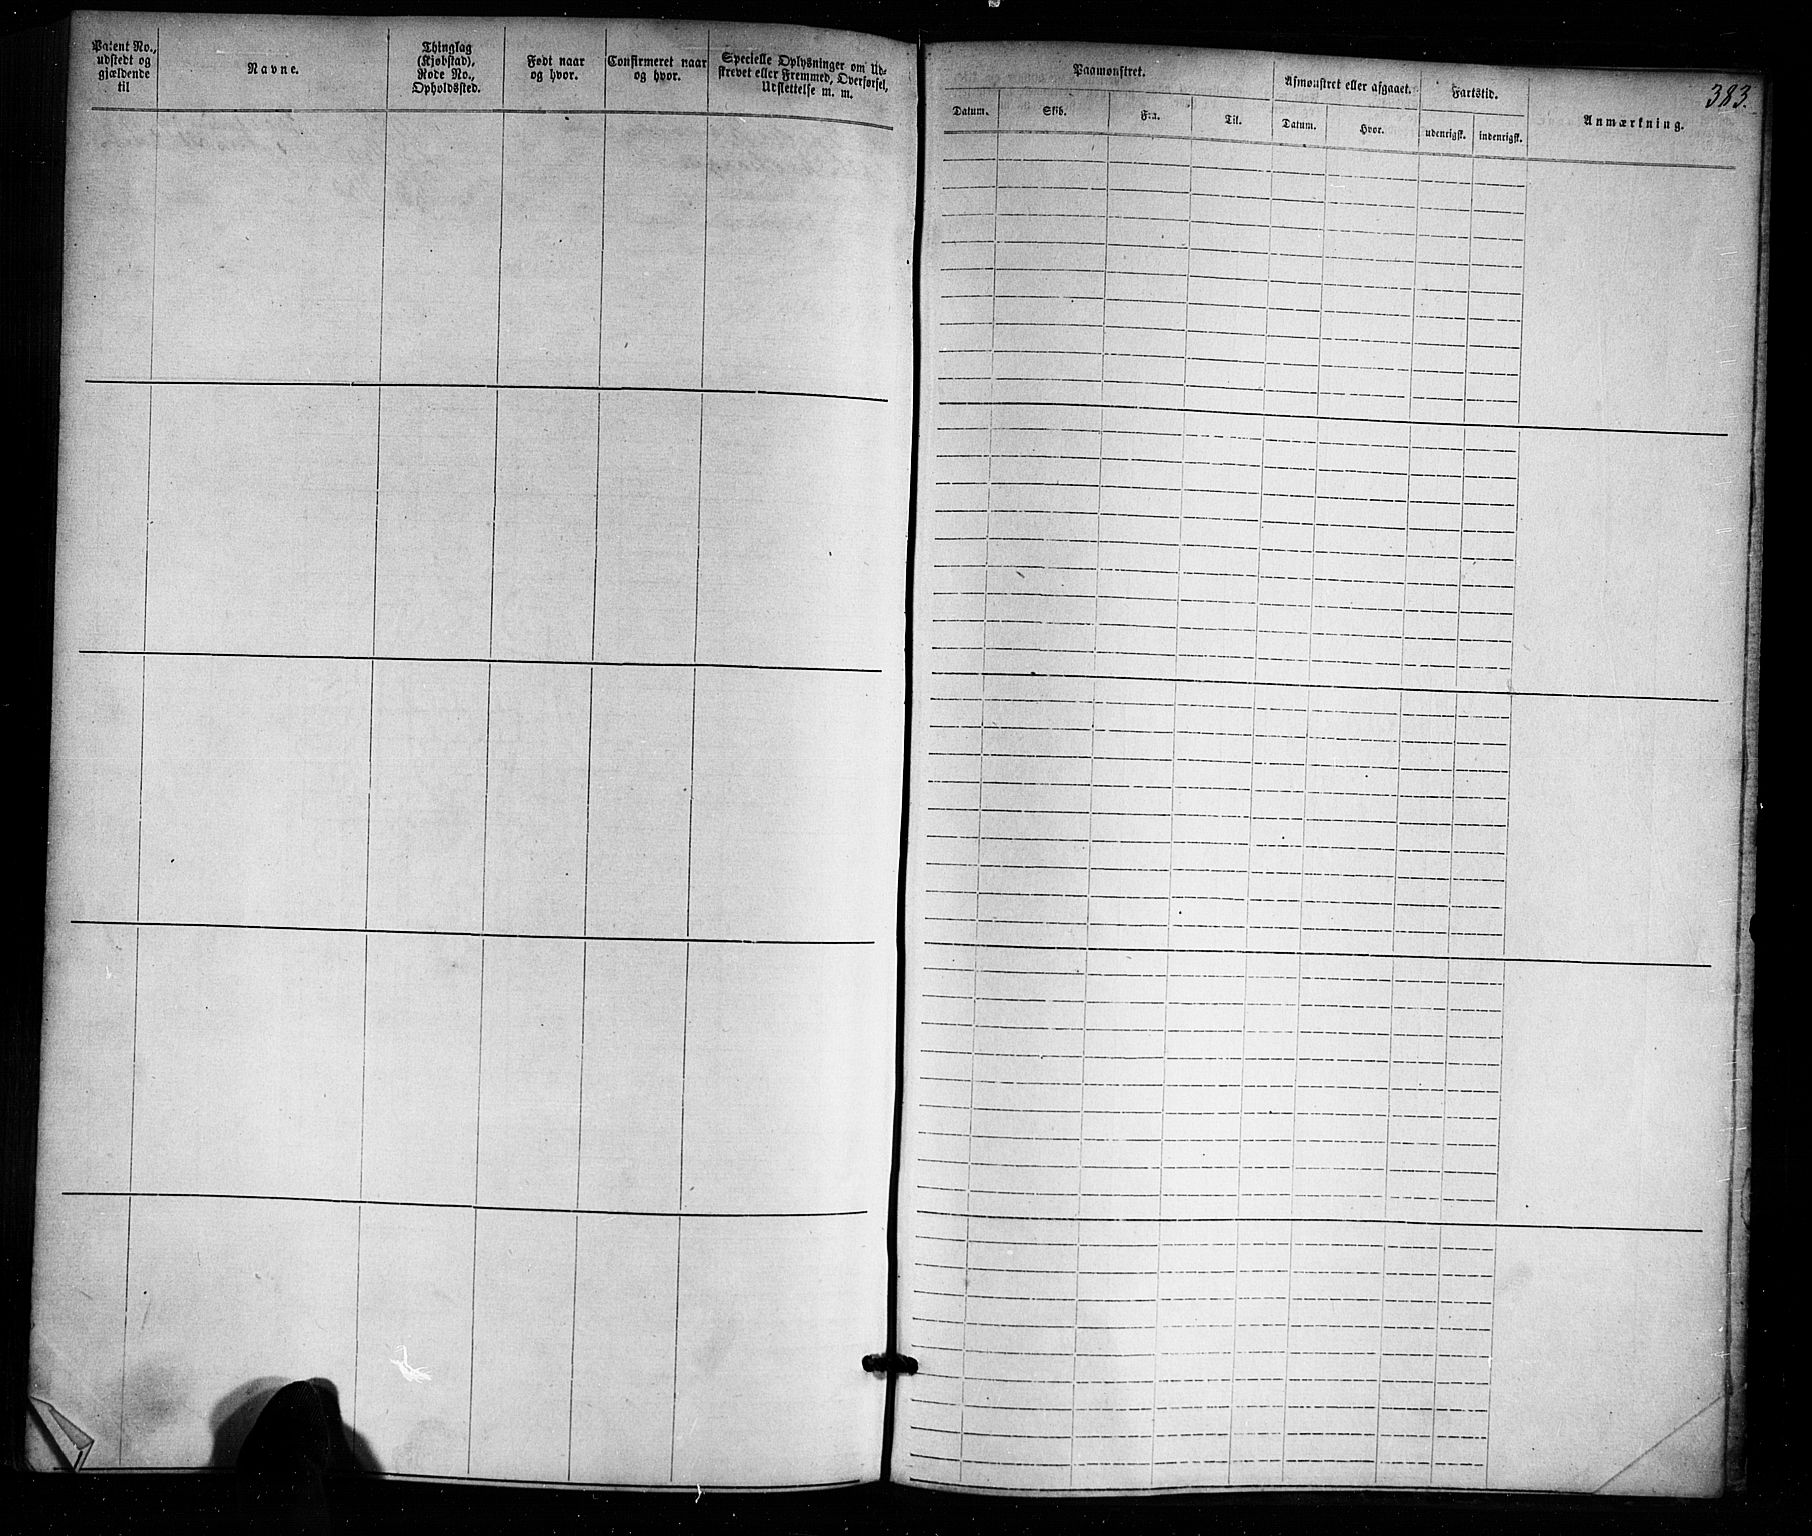 Patent No., udstedt og gjældende til
Navne.
Thinglag (Kjøbstad), Rode No., Opholdssted.
Født naar og hvor.
Confirmeret naar og hvor.
Specielle Oplysninger om Udskrevet eller Fremmed, Overførsel, Udslettelse m. m.
383.
Paamønstret.
Afmønstret eller afgaaet.
Fartstid.
Anmærkning.
Datum.
Skib.
Fra.
Til.
Datum.
Hvor.
udenrigsk.
indenrigsk.